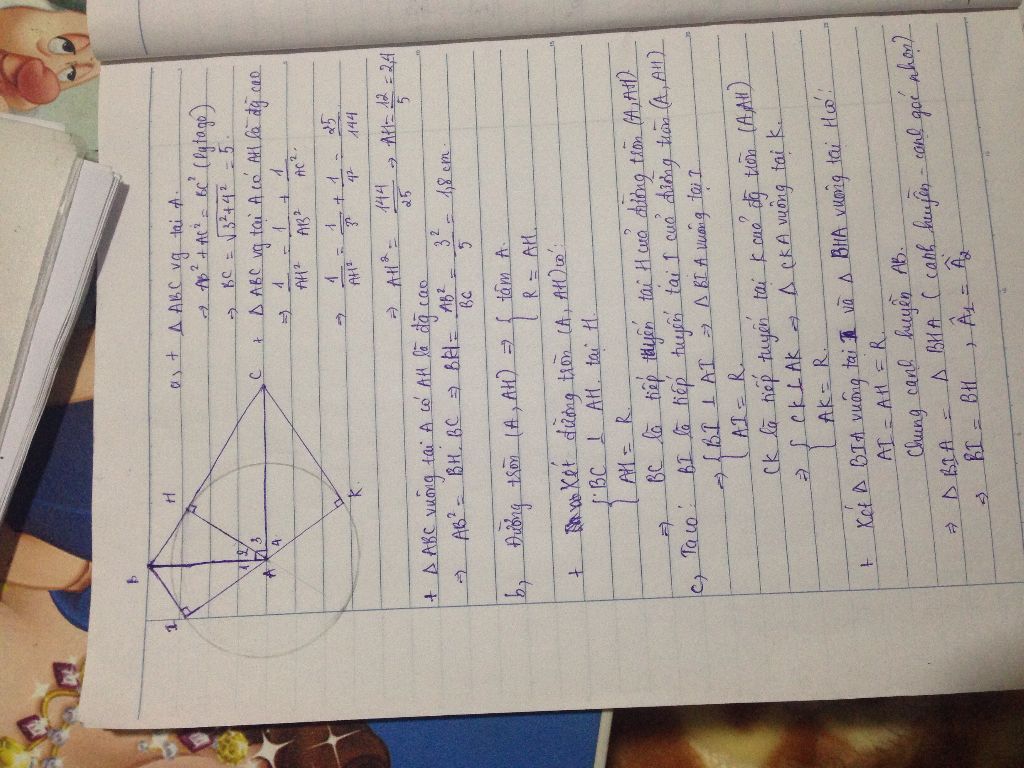 B
I
H
1 2
3
A
4
C
K
a, + Δ ABC vg tại A.
⇒ AB² + AC² = BC² (Pytago)
⇒ BC = √3²+4² = 5.
+ Δ ABC vg tại A có AH là đg cao
⇒ 1/AH² = 1/AB² + 1/AC².
⇒ 1/AH² = 1/3² + 1/4² = 25/144
⇒ AH² = 144/25 ⇒ AH = 12/5 = 2,4
+ Δ ABC vuông tại A có AH là đg cao
⇒ AB² = BH.BC ⇒ BH = AB²/BC = 3²/5 = 1,8 cm.
b, Đường tròn (A, AH) ⇒ { tâm A.
R = AH.
+ Xét đường tròn (A, AH) có:
{ BC ⊥ AH tại H.
AH = R
⇒ BC là tiếp tuyến tại H của đường tròn (A, AH)
c, Ta có: BI là tiếp tuyến tại I của đường tròn (A, AH)
⇒ { BI ⊥ AI ⇒ Δ BIA vuông tại I
AI = R.
CK là tiếp tuyến tại K của đg tròn (A, AH)
⇒ { CK ⊥ AK ⇒ Δ CKA vuông tại K.
AK = R.
+ Xét Δ BIA vuông tại I và Δ BHA vuông tại H có:
AI = AH = R
Chung cạnh huyền AB.
⇒ Δ BIA = Δ BHA (cạnh huyền - cạnh góc nhọn)
⇒ BI = BH, Â1 = Â2